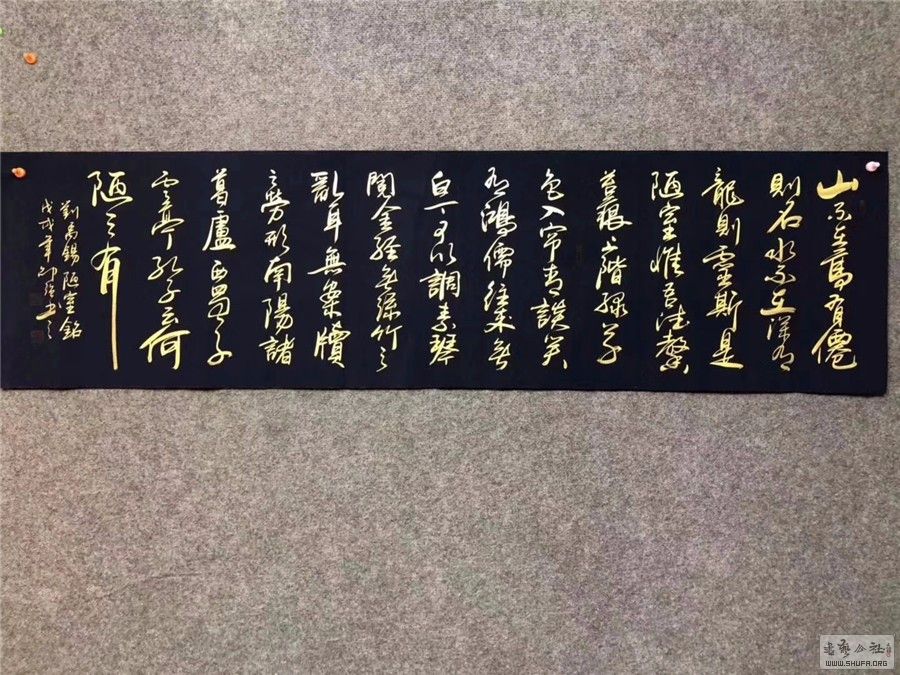 山不在高有僊
則名水不在深有
龍則靈斯是
陋室惟吾德馨
苔痕上階綠草
色入帘青談笑
有鴻儒往來無
白丁可以調素琴
閱金經無絲竹之
亂耳無案牘
之勞形南陽諸
葛盧西蜀子
雲亭孔子云何
陋之有
劉禹錫陋室銘
戊戌年
WWW.SHUFA.ORG